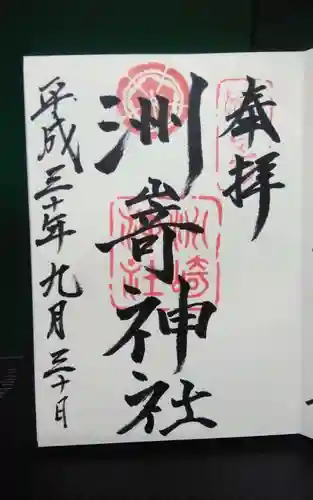 奉拝
洲嵜神社
平成三十年九月三十日
洲崎神社